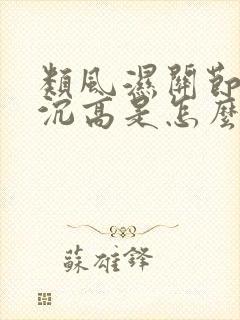 類風濕關節
沉高是怎麼
蘇雄鋒